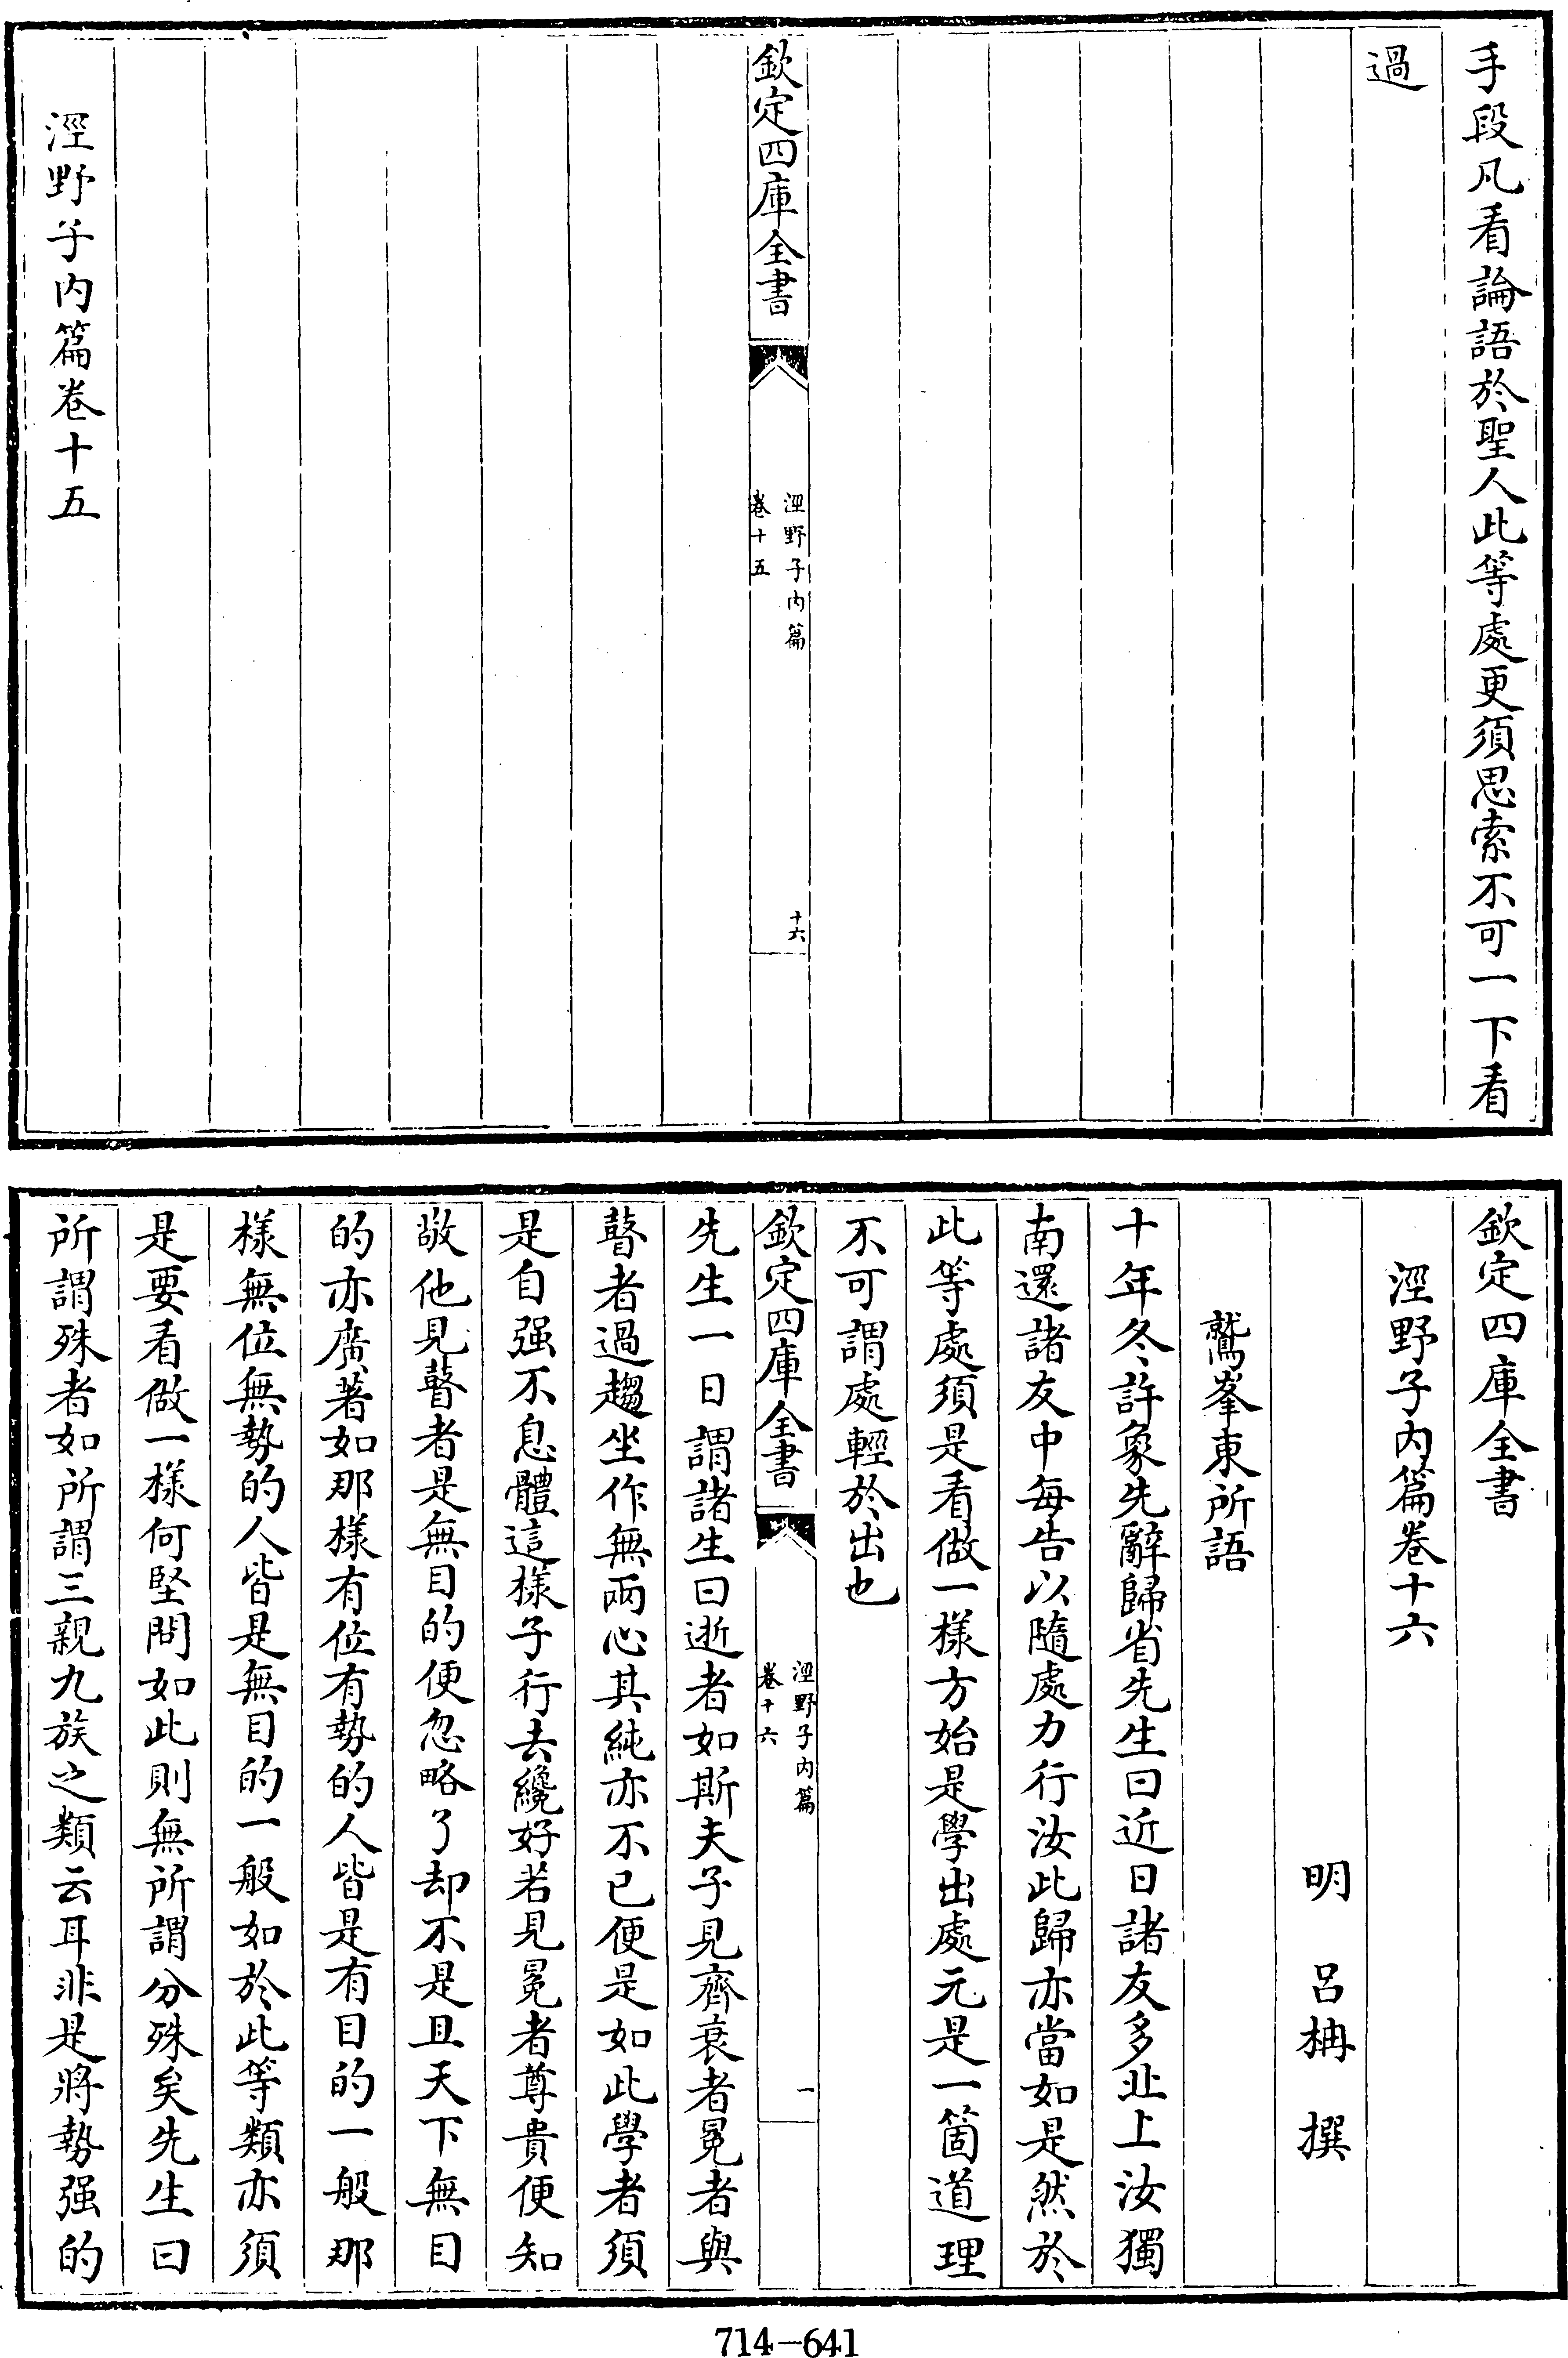 手段凡看論語於聖人此等處更須思索不可一下看
過
欽定四庫全書
涇野子內篇
卷十五
十六
涇野子內篇卷十五
欽定四庫全書
涇野子內篇卷十六
明 呂柟 撰
鷲峯東所語
十年冬許象先辭歸省先生曰近日諸友多北上汝獨
南還諸友中每告以隨處力行汝此歸亦當如是然於
此等處須是看做一樣方始是學出處元是一箇道理
不可謂處輕於出也
欽定四庫全書
涇野子內篇
卷十六
一
先生一日謂諸生曰逝者如斯夫子見齊衰者冕者與
瞽者過趨坐作無兩心其純亦不已便是如此學者須
是自强不息體這樣子行去纔好若見冕者尊貴便知
敬他見瞽者是無目的便忽略了却不是且天下無目
的亦廣著如那樣有位有勢的人皆是有目的一般那
樣無位無勢的人皆是無目的一般如於此等類亦須
是要看做一樣何堅問如此則無所謂分殊矣先生曰
所謂殊者如所謂三親九族之類云耳非是將勢强的
714-641